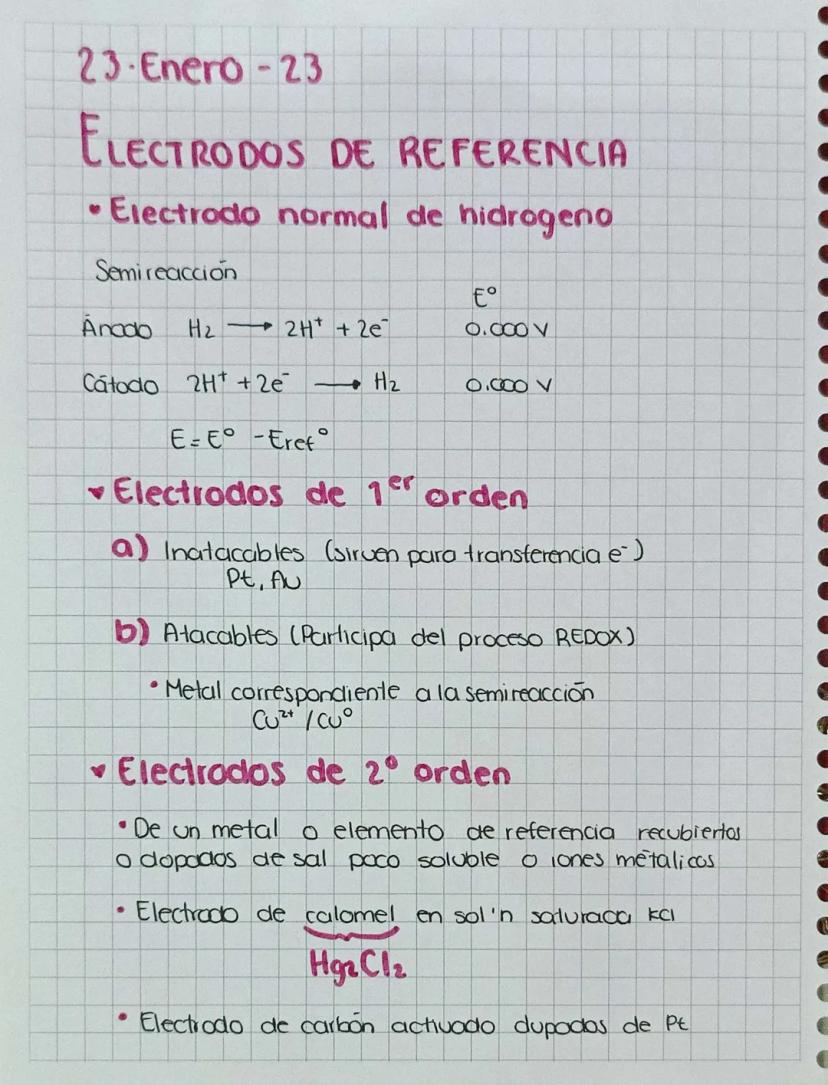 23·Enero - 23
ELECTRODOS DE REFERENCIA
• Electrodo normal de hidrogeno
Semireacción
E°
Ánodo H₂ → 2H⁺ + 2e⁻ 0.000 V
Cátodo 2H⁺ + 2e⁻ → H₂ 0.000 V
E = E° - Eref°
♥ Electrodos de 1er orden
a) Inatacables (sirven para transferencia e⁻)
Pt, Au
b) Atacables (Participa del proceso REDOX)
• Metal correspondiente a la semireacción
Cu²⁺ / Cu°
♥ Electrodos de 2° orden
• De un metal o elemento de referencia recubiertos
o dopados de sal poco soluble o iones métalicos
• Electrodo de calomel en sol'n saturada KCl
Hg₂Cl₂
• Electrodo de carbón activado dupados de Pt